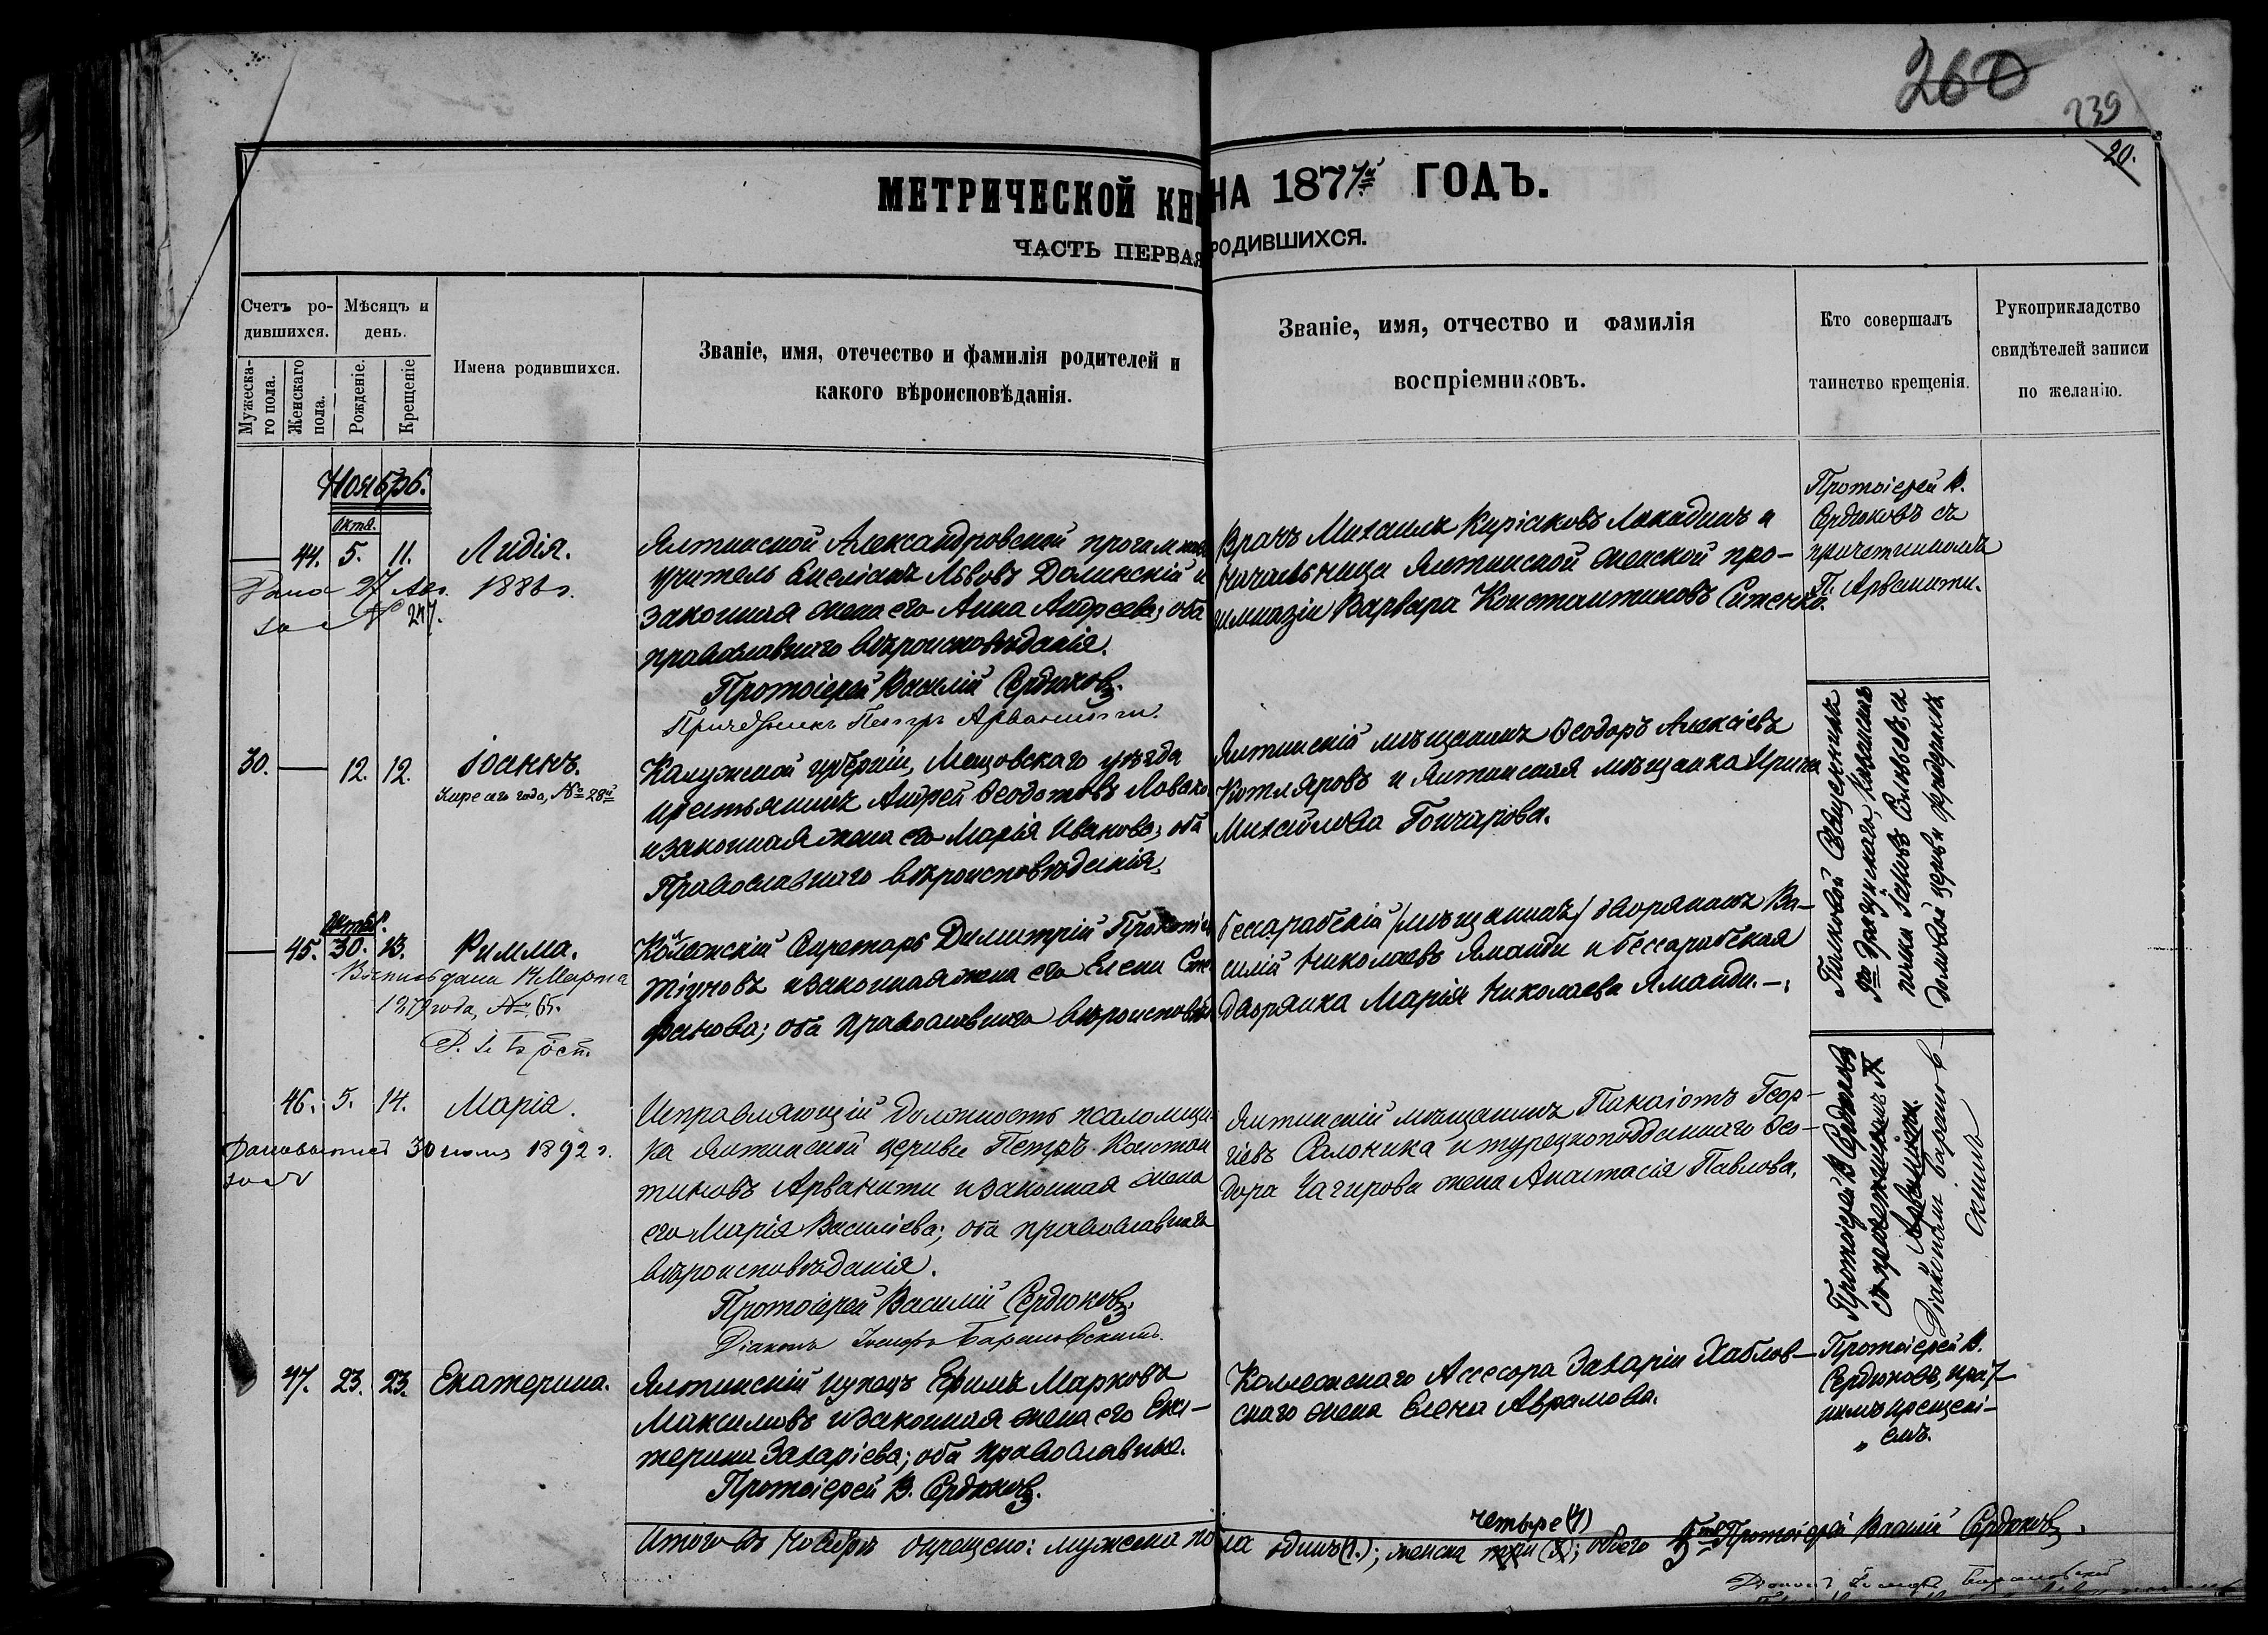 260
239
20.
МЕТРИЧЕСКОЙ КНИ НА 1877й ГОДЪ.
ЧАСТЬ ПЕРВАЯ РОДИВШИХСЯ.
Счетъ ро-
дившихся.
Мужеска-
го пола.
Женскаго
пола.
Мѣсяцъ и
день.
Рожденіе.
Крещеніе
Имена родившихся.
Званіе, имя, отечество и фамилія родителей и
какого вѣроисповѣданія.
Званіе, имя, отчество и фамилія
воспріемниковъ.
Кто совершалъ
таинство крещенія.
Рукоприкладство
свидѣтелей записи
по желанію.
Ноябрь.
Октя.
44. 5. 11. Лидія.
27 Авг. 1886 г.
№ 217.
Ялтинской Александровской прогимназ
учитель Львовъ Долинскій и
законная жена его Анна Андреева; оба
православнаго вѣроисповѣданія.
Протоіерей Василій Сердюковъ.
Причетникъ Петръ Арванити.
Врачъ Михаилъ Киріаковъ и
начальница Ялтинской женской про-
гимназіи Варвара Константиновъ Ситенко.
Протоіерей В.
Сердюковъ съ
причетникомъ
П. Арванити.
30. 12. 12. Іоаннъ.
сего года, № 28й
Калужской губерніи, Мещовскаго уѣзда
крестьянинъ Андрей Ѳеодотовъ
и законная жена его Марія Иванова; оба
Православнаго вѣроисповѣданія.
Ялтинскій мѣщанинъ Ѳеодоръ Алексіевъ
Котляровъ и Ялтинская мѣщанка Ирина
Михайлова Гончарова.
Полковой Священникъ
домовой церкви
Октяб.
45. 30. 13. Римма.
дана Марта
1879 года, № 65.
Коллежскій Секретарь Димитрій
и законная жена его Елена
фанова; оба православнаго вѣроисповѣд
Бессарабскій /мѣщанинъ/ дворянинъ Ва-
силій Николаевъ Яманди и Бессарабская
дворянка Марія Николаева Яманди.
46. 5. 14. Марія.
30 1892 г.
Исправляющій должность псаломщи
ка Ялтинской церкви Петръ Констан
тиновъ Арванити и законная жена
его Марія Василіева; оба православнаго
вѣроисповѣданія.
Протоіерей Василій Сердюковъ.
Діаконъ Іосифъ Барановскій.
Ялтинскій мѣщанинъ Панаіотъ Геор-
гіевъ Салоника и турецкоподданнаго Ѳео-
дора Чагирова жена Анастасія Павлова.
Протоіерей В. Сердюковъ
Арванити.
Діаконъ Баранов-
скимъ
47. 23. 23. Екатерина.
Ялтинскій купецъ Ефимъ Марковъ
Максимовъ и законная жена его Ека-
терина Захаріева; оба православные.
Протоіерей В. Сердюковъ.
Коллежскаго Ассесора Захаріи Хаблов-
скаго жена Елена Аврамова.
Протоіерей В.
Сердюковъ, крат-
кимъ крещені-
емъ.
Итого въ Ноябрѣ окрещено: мужеска пола одинъ (1.); женска три (3) четыре (4); всего 5ть Протоіерей Василій Сердюковъ.
Діаконъ Іосифъ Барановскій